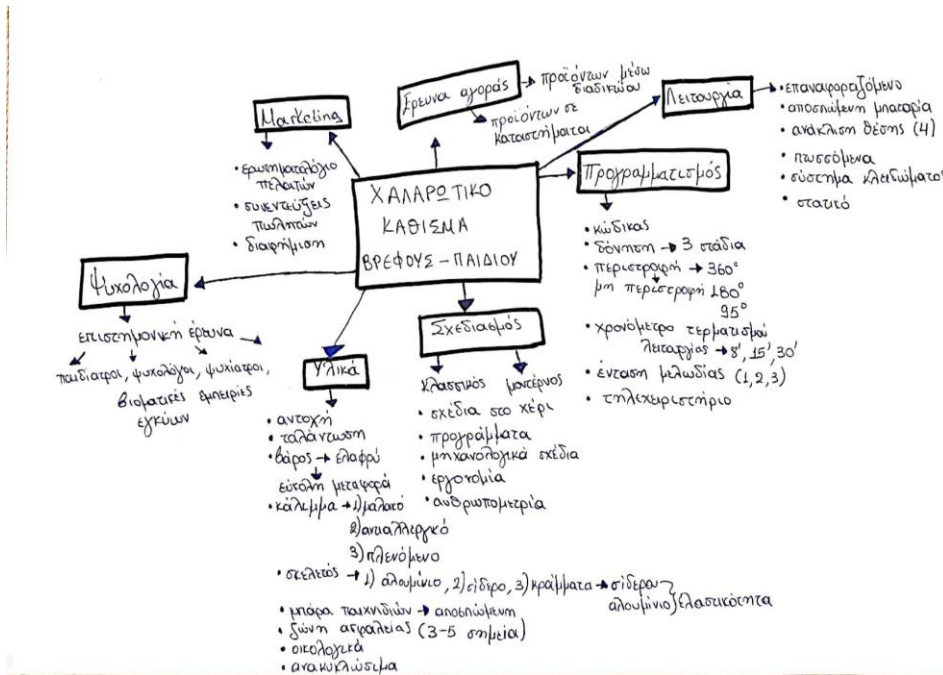 Marketing
• ερωτηματολόγιο
πελατών
• συνεντεύξεις
πωλητών
• διαφήμιση
Έρευνα αγοράς
προϊόντων μέσω
διαδικτύου
προϊόντων σε
καταστήματα
Λειτουργία
• επαναφορτιζόμενο
• αποσπώμενη μπαταρία
• ανάκλιση θέσης (4)
• πτυσσόμενα
• σύστημα κλειδώματος
• στατικό
ΧΑΛΑΡΩΤΙΚΟ
ΚΑΘΙΣΜΑ
ΒΡΕΦΟΥΣ - ΠΑΙΔΙΟΥ
Προγραμματισμός
• κώδικας
• δόνηση → 3 στάδια
• περιστροφή → 360°
μη περιστροφή 180°
95°
• χρονόμετρο τερματισμού
λειτουργίας → 8', 15', 30'
• ένταση μελωδίας (1,2,3)
• τηλεχειριστήριο
Ψυχολογία
επιστημονική έρευνα
παιδίατροι, ψυχολόγοι, ψυχίατροι,
βιωματικές εμπειρίες
εγκύων
Σχεδιασμός
κλασσικός μοντέρνος
• σχέδια στο χέρι
• προγράμματα
• μηχανολογικά σχέδια
• εργονομία
• ανθρωπομετρία
Υλικά
• αντοχή
• ταλάντωση
• βάρος → ελαφρύ
εύκολη μεταφορά
• κάλυμμα → 1) μαλακό
2) αντιαλλεργικό
3) πλενόμενο
• σκελετός → 1) αλουμίνιο, 2) σίδερο, 3) κράμματα → σίδερου
αλουμίνιο } ελαστικότητα
• μπάρα παιχνιδιών → αποσπώμενη
• ζώνη ασφαλείας (3-5 σημεία)
• οικολογικά
• ανακυκλώσιμα